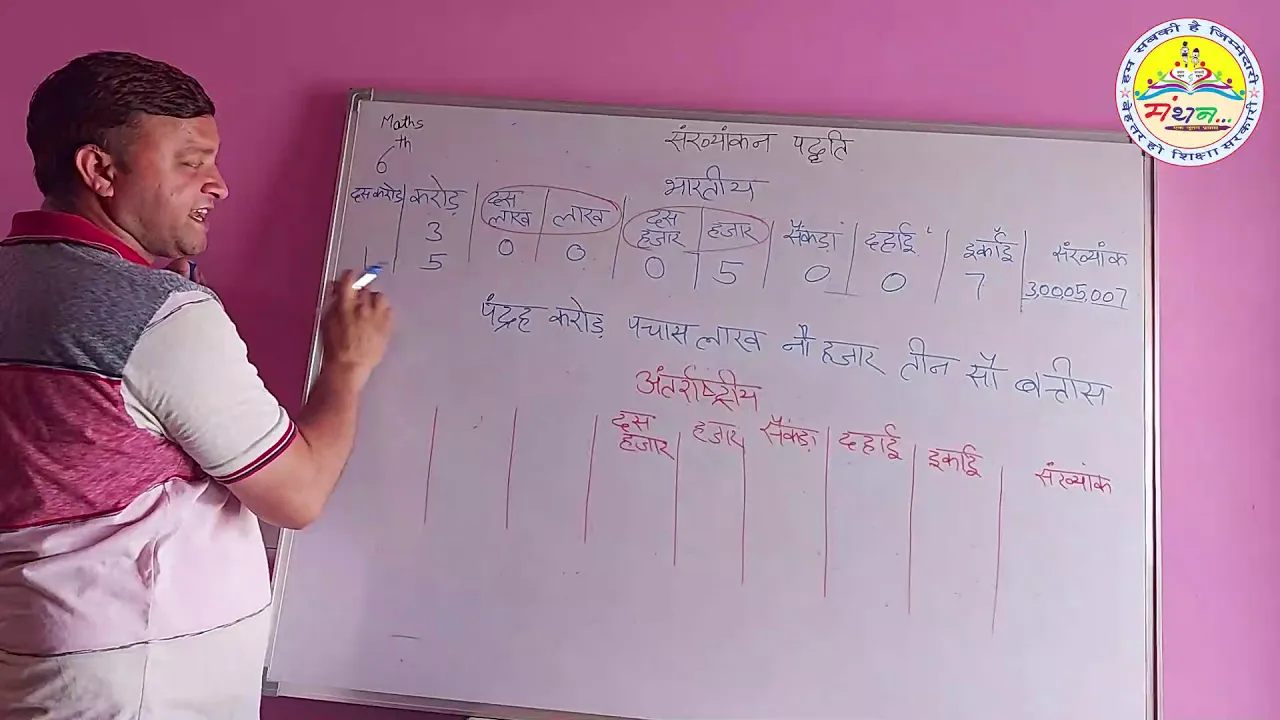 Maths
6th
संख्यांकन पद्धति
भारतीय
दस करोड़ करोड़ दस लाख लाख दस हजार हजार सैंकड़ा दहाई इकाई संख्यांक
3 0 0 0 5 0 0 7 3,00,05,007
1 5
पंद्रह करोड़ पचास लाख नौ हजार तीन सौ बत्तीस
अंतर्राष्ट्रीय
दस हजार हजार सैंकड़ा दहाई इकाई संख्यांक
हम सबकी है जिम्मेदारी
मंथन...
एक नूतन प्रयास
बेहतर हो शिक्षा सरकारी